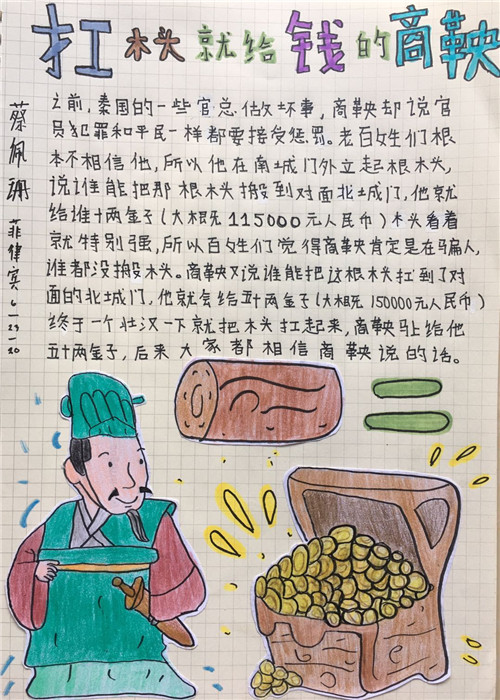 扛木头就给钱的商鞅
蔡佩珊 菲律宾 6-23-20
之前,秦国的一些官总做坏事,商鞅却说官
员犯罪和平民一样都要接受惩罚。老百姓们根
本不相信他,所以他在南城门外立起根木头,
说谁能把那根木头搬到对面北城门,他就
给谁十两金子(大概 115000元人民币)木头看着
就特别强,所以百姓们觉得商鞅肯定是在骗人,
谁都没搬木头。商鞅又说谁能把这根木头扛到了对
面的北城门,他就会给五十两金子(大概 150000元人民币)
终于一个壮汉一下就把木头扛起来,商鞅马上给他
五十两金子,后来大家都相信商鞅说的话。